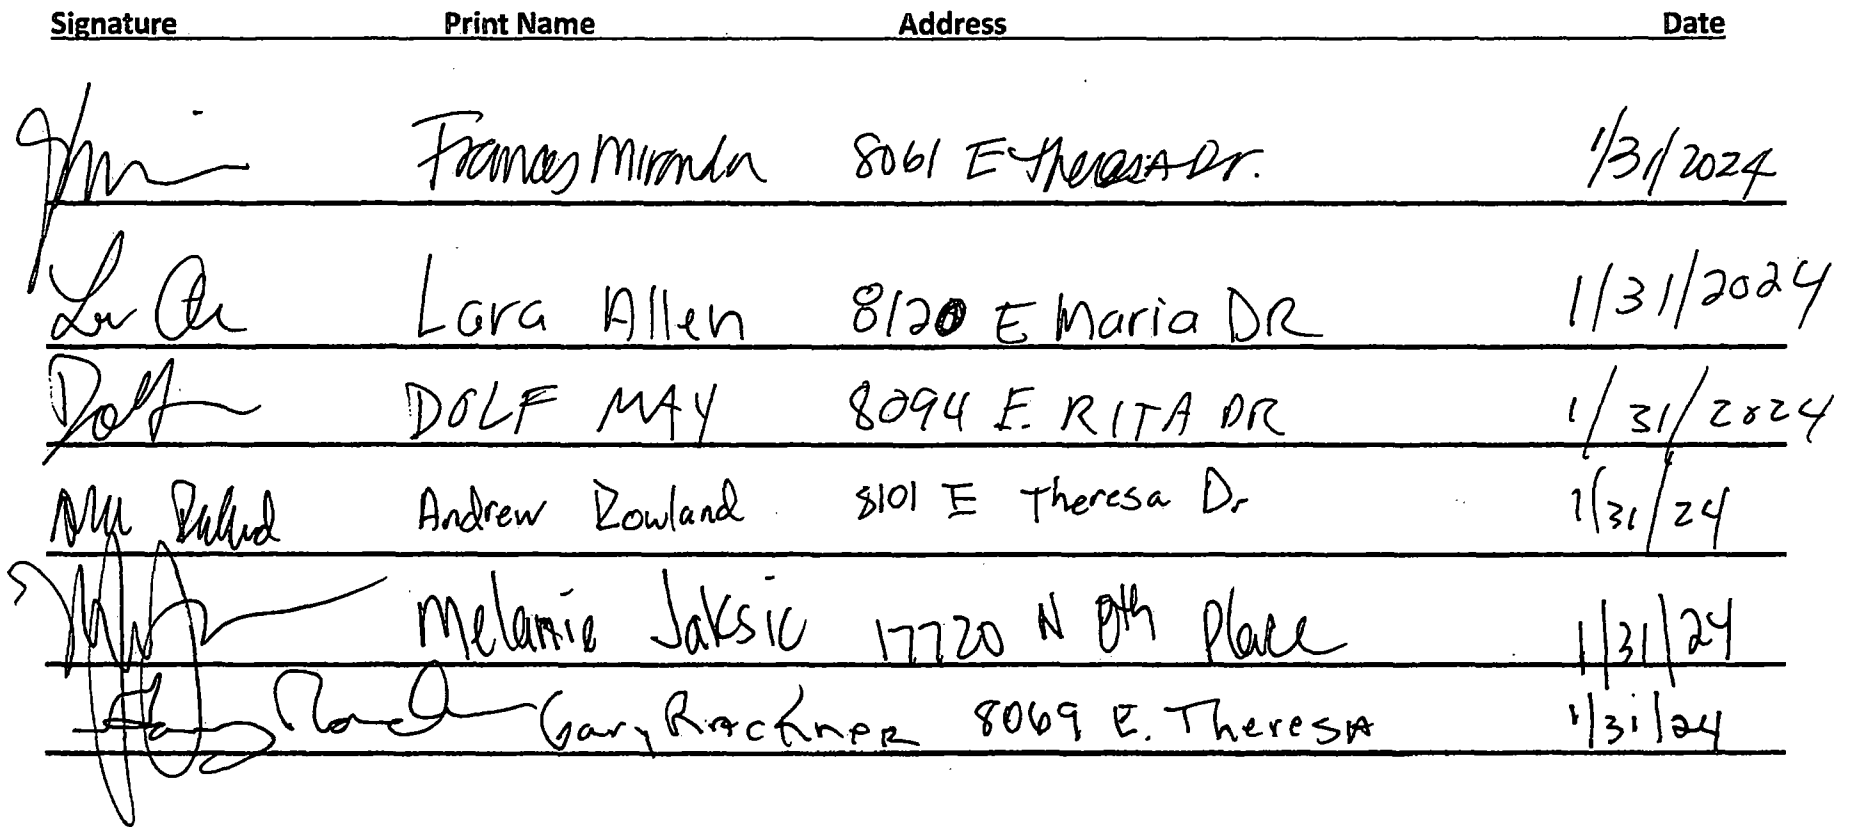 Signature Print Name Address Date
Frances Miranda 8061 E Theresa Dr. 1/31/2024
Lara Allen 8120 E Maria DR 1/31/2024
DOLF MAY 8094 E. RITA DR 1/31/2024
Andrew Rowland 8101 E Theresa Dr 1/31/24
Melanie Jaksic 17720 N 8th Place 1/31/24
Gary Rackner 8069 E. Theresa 1/31/24